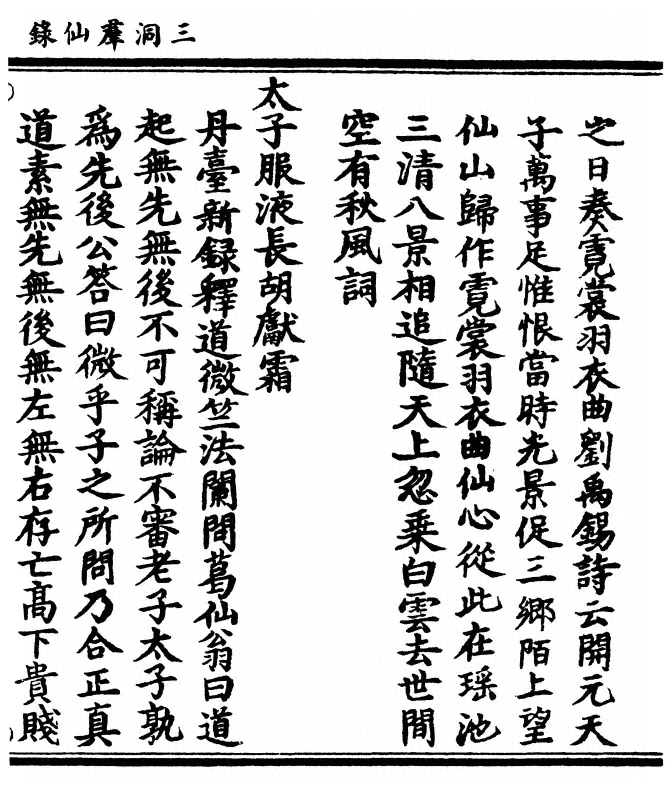 三洞羣仙錄
之日奏霓裳羽衣曲劉禹錫詩云開元天
子萬事足惟恨當時光景促三鄉陌上望
仙山歸作霓裳羽衣曲仙心從此在瑶池
三清八景相追隨天上忽乘白雲去世間
空有秋風詞
太子服液長胡獻霜
丹臺新録釋道微竺法闌問葛仙翁曰道
起無先無後不可稱論不審老子太子孰
爲先後公答曰微乎子之所問乃合正真
道素無先無後無左無右存亡髙下貴賤